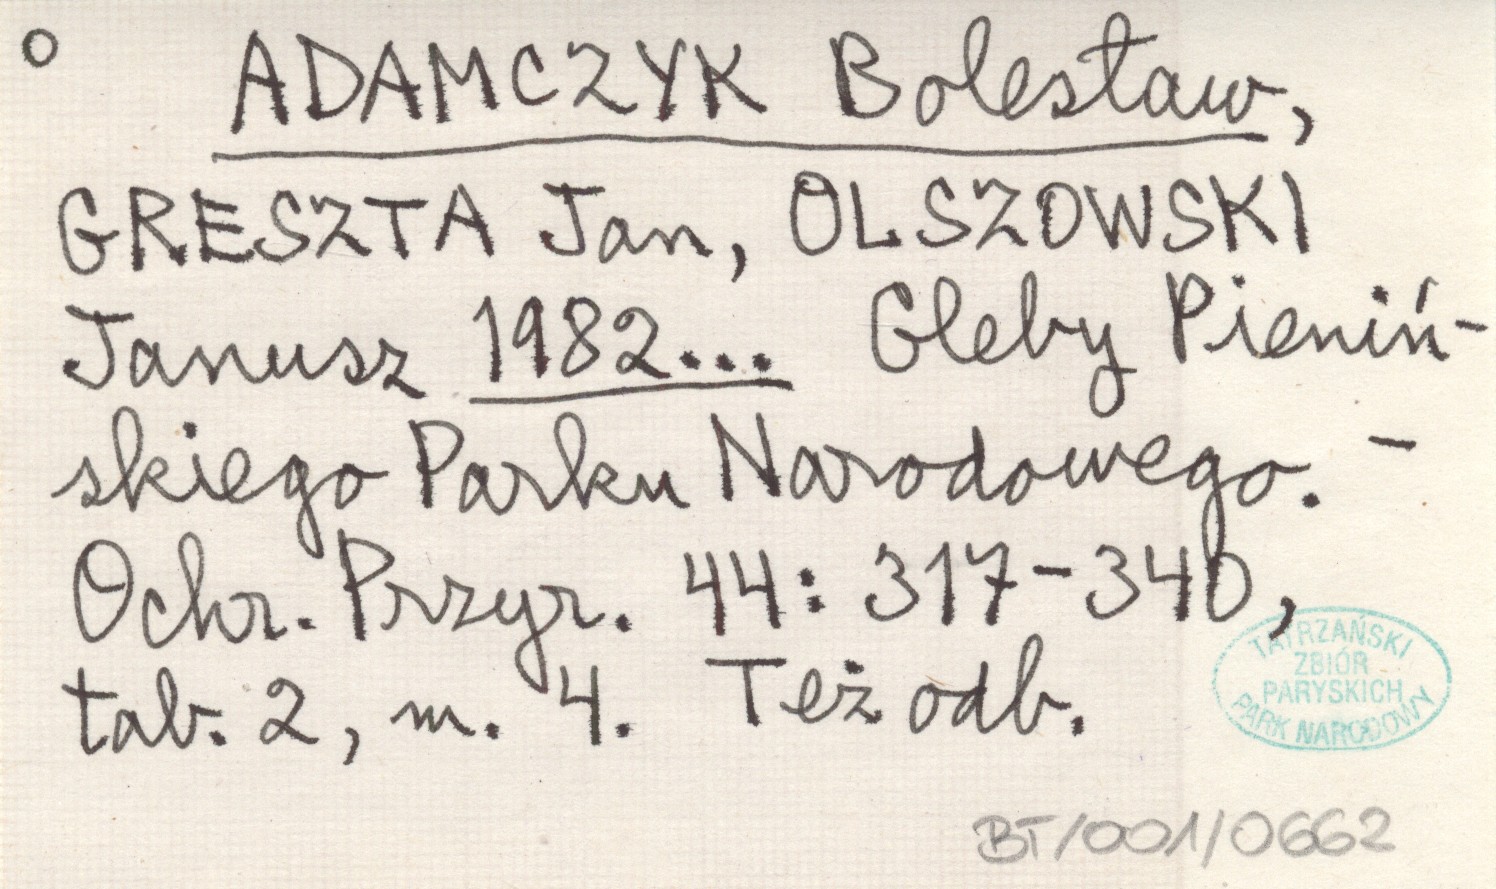 o ADAMCZYK Bolesław,
GRESZTA Jan, OLSZOWSKI
Janusz 1982... Gleby Pieniń-
skiego Parku Narodowego. –
Ochr. Przyr. 44: 317-340,
tab. 2, m. 4. Też odb.
TATRZAŃSKI
ZBIÓR
PARYSKICH
PARK NARODOWY
BT/001/0662